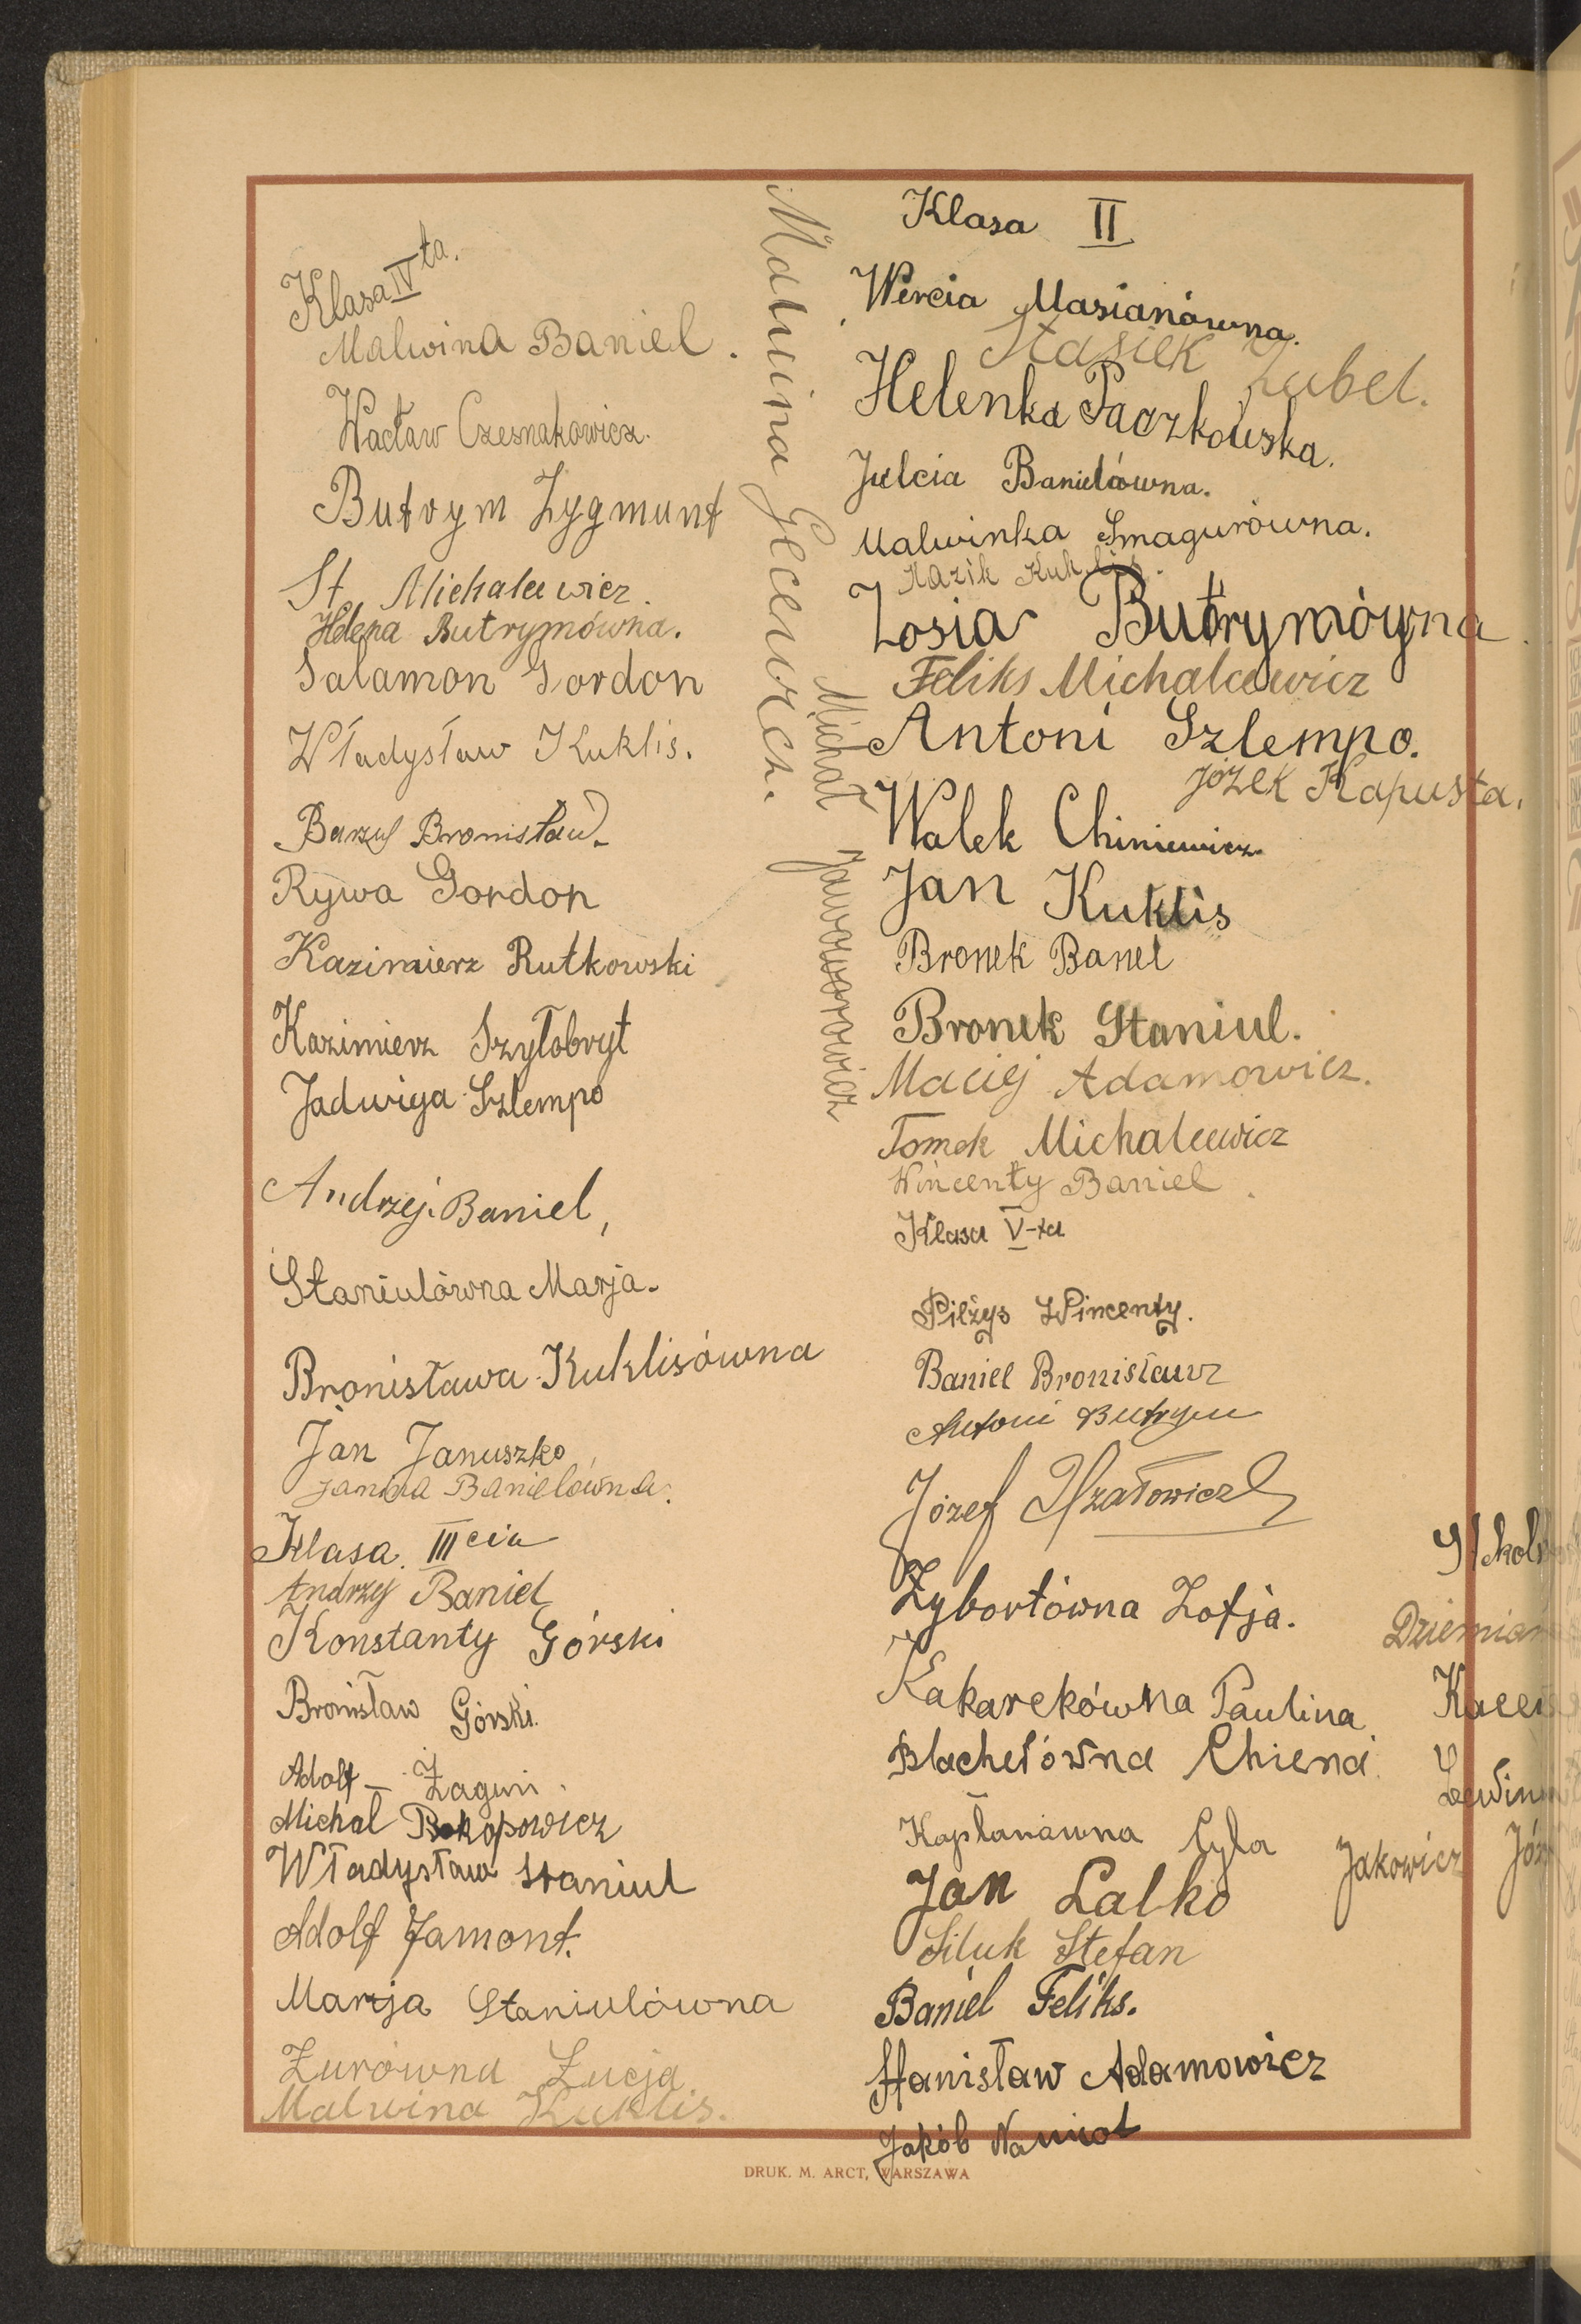 Klasa IV ta.
Malwina Baniel.
Wacław Czesnakowicz.
Butrym Zygmunt
St. Michalcewicz.
Helena Butrymówna.
Salamon Gordon
Władysław Kuklis.
Bronisław.
Rywa Gordon
Kazimierz Rutkowski
Kazimierz Szyłobryt
Jadwiga Szlempo
Andrzej Baniel,
Staniulówna Marja.
Bronisława Kuklisówna
Jan Januszko
Janina Banielówna.
Klasa III cia
Andrzej Baniel
Konstanty Górski
Bronisław Górski.
Adolf Żagun
Michał Prokopowicz
Władysław Staniul
Adolf Jamont.
Marja Staniulówna
Żurówna Łucja
Malwina Kuklis.
Malwina Gecewicz.
Michał Jaworowicz
Klasa II
Wercia Masianówna.
Stasiek Zubel.
Helenka Paczkowska.
Julcia Banielówna.
Malwinka Smagurówna.
Kazik Kuklis.
Zosia Butrymówna.
Feliks Michalcewicz
Antoni Szlempo.
Józek Kapusta.
Walek Chiniewicz.
Jan Kuklis
Bronek Banel
Bronek Staniul.
Maciej Adamowicz.
Tomek Michalcewicz
Wincenty Baniel.
Klasa V-ta
Pilżys Wincenty.
Baniel Bronisław
Antoni Butrym
Józef
Zybortówna Zofja.
Kakarekówna Paulina
Blacherówna Chiena
Kapłanówna Cyla
Jakowicz
Jan Lalko
Siluk Stefan
Baniel Feliks.
Stanisław Adamowicz
Jakób Namiot
DRUK. M. ARCT, WARSZAWA